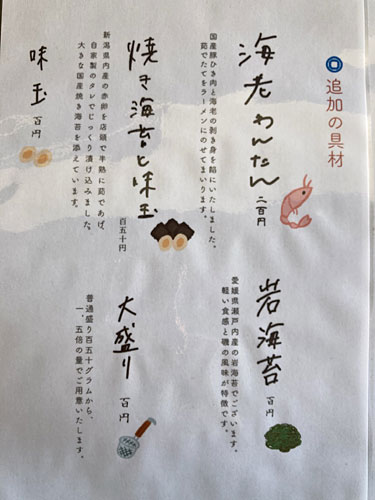 追加の具材
海老わんたん
二百円
国産豚ひき肉と海老の剥き身を餡にいたしました。
茹でたてをラーメンにのせてまいります。
焼き海苔と味玉
百五十円
新潟県内産の赤卵を店頭で半熟に茹であげ、
自家製のタレでじっくり漬け込みました。
大きな国産焼き海苔を添えています。
味玉
百円
岩海苔
百円
愛媛県瀬戸内産の岩海苔でございます。
軽い食感と磯の風味が特徴です。
大盛り
百円
普通盛り百五十グラムから、
一、五倍の量でご用意いたします。